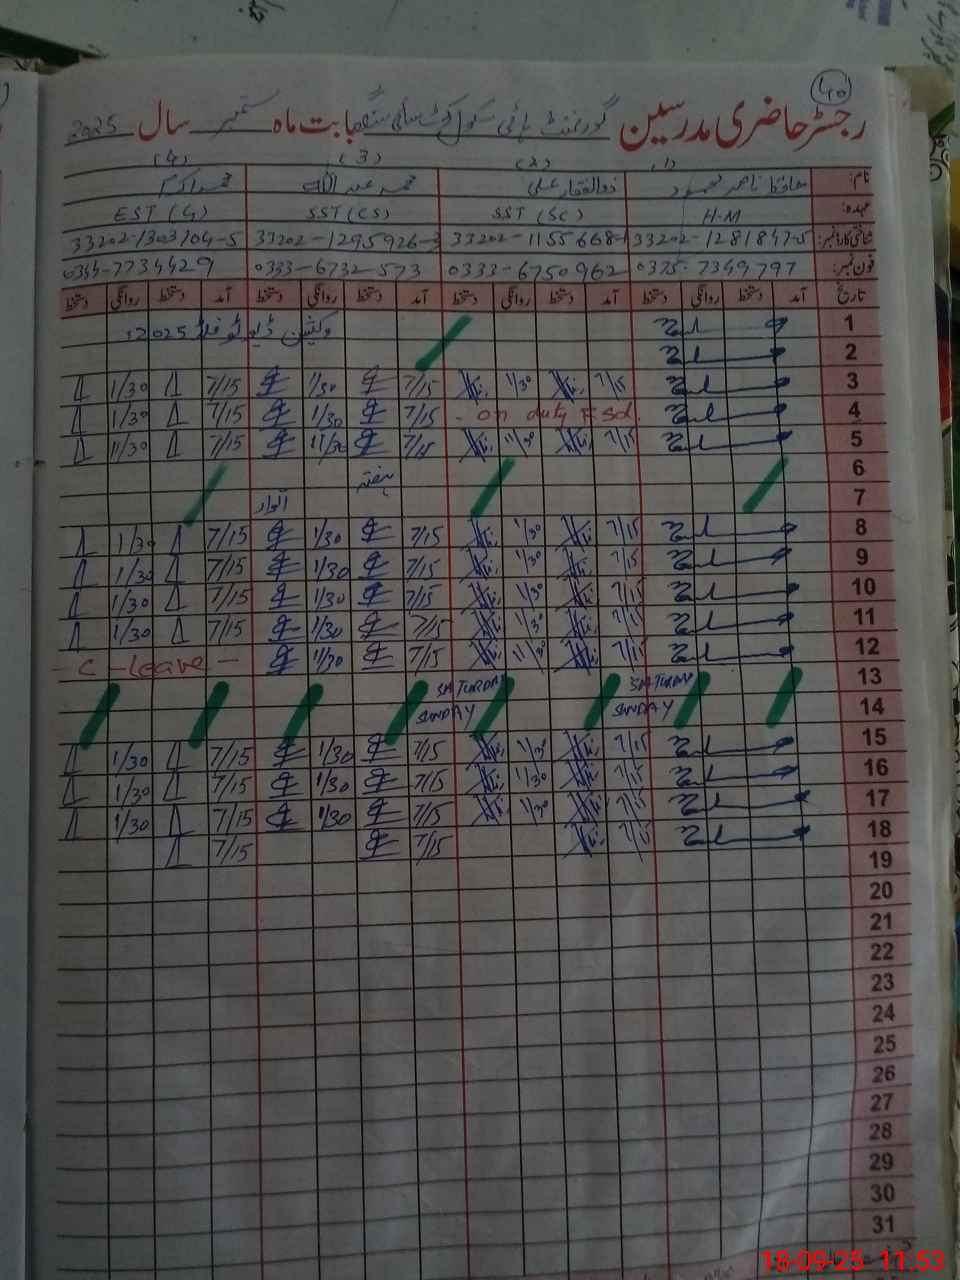 40
رجسٹر حاضری مدرسین گورنمنٹ ہائی سکول بابت ماہ ستمبر سال 2025
(1) (2) (3) (4)
نام: حافظ ناصر محمود ذوالفقار علی محمد عبداللہ محمد اکرم
عہدہ: H-M SST (SC) SST (CS) EST (G)
شناختی کارڈ نمبر: 33202-1281847-5 33202-1155668-1 33202-1295926-3 33202-1303104-5
فون نمبر: 0375-7349797 0333-6750962 0333-6732573 0344-7734429
تاریخ آمد دستخط روانگی دستخط آمد دستخط روانگی دستخط آمد دستخط روانگی دستخط آمد دستخط روانگی دستخط
1 ویکیشن ڈیو ٹو فلڈ 2025
2
3 7/15 1/30 7/15 1/30 7/15 1/30
4 - on duty FSd. 7/15 1/30 7/15 1/30
5 7/15 11/30 7/15 11/30 7/15 11/30
6 ہفتہ
7 اتوار
8 7/15 1/30 7/15 1/30 7/15 1/30
9 7/15 1/30 7/15 1/30 7/15 1/30
10 7/15 1/30 7/15 1/30 7/15 1/30
11 7/15 1/30 7/15 1/30 7/15 1/30
12 7/15 11/30 7/15 11/30 - C - Leave -
13 SATURDAY SATURDAY
14 SUNDAY SUNDAY
15 7/15 1/30 7/15 1/30 7/15 1/30
16 7/15 1/30 7/15 1/30 7/15 1/30
17 7/15 1/30 7/15 1/30 7/15 1/30
18 7/15 7/15 7/15
19
20
21
22
23
24
25
26
27
28
29
30
31
18-09-25 11:53